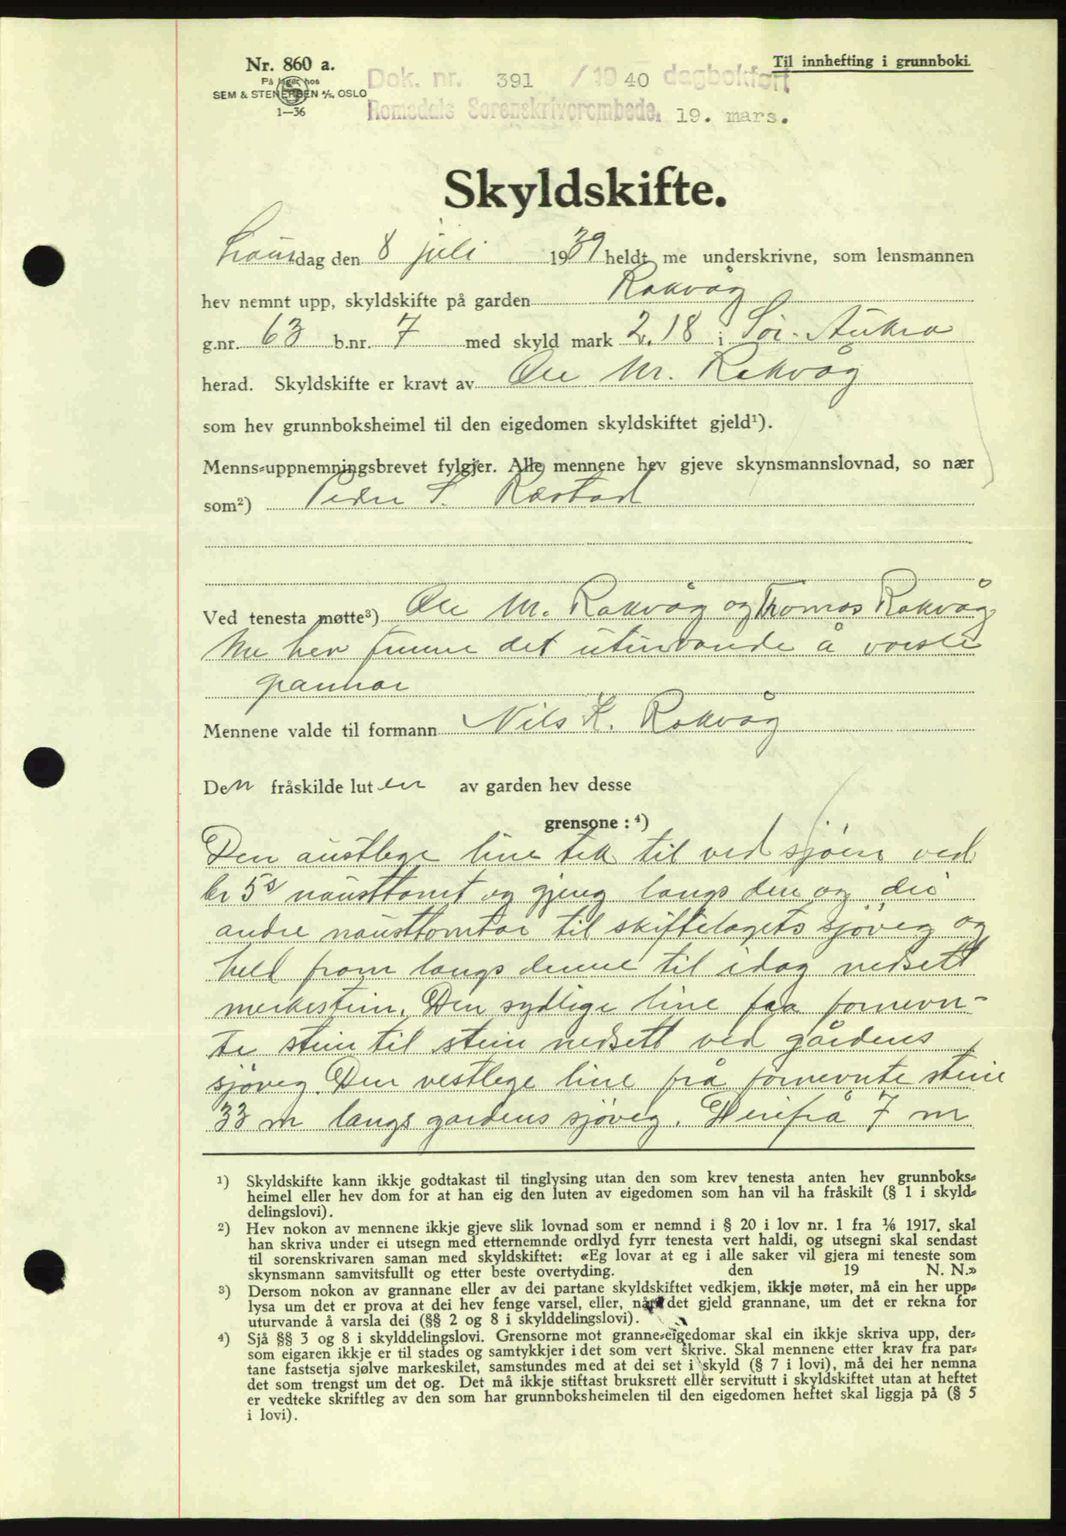 Nr. 860 a.
På lager hos
SEM & STENERSEN A/S, OSLO
1—36
Til innhefting i grunnboki.
Dok. nr. 391 / 1940 dagbokført
Romsdals Sorenskriverembede, 19. mars.
Skyldskifte.
Laurdag den 8 juli 1939 heldt me underskrivne, som lensmannen
hev nemnt upp, skyldskifte på garden Rakvåg
g.nr. 63 b.nr. 7 med skyld mark 2.18 i Sör-Aukra
herad. Skyldskifte er kravt av Ole M. Rakvåg
som hev grunnboksheimel til den eigedomen skyldskiftet gjeld¹).
Menns-uppnemningsbrevet fylgjer. Alle mennene hev gjeve skynsmannslovnad, so nær
som²) Peder S. Røstad
Ved tenesta møtte³) Ole M. Rakvåg og Thomas Rakvåg
Me hev funne det uturvande å varsle
grannar
Mennene valde til formann Nils K. Rakvåg
Den fråskilde luten av garden hev desse
grensone : ⁴)
Den austlege line tek til ved sjöen ved
br 5s nausttomt og gjeng langs den og dei
andre nausttomtar til skiftelagets sjöveg og
held fram langs denne til idag nedsett
merkestein. Den sydlige line fra fornevn-
te stein til stein nedsett ved gårdens
sjöveg. Den vestlege line frå fornevnte stein
33 m langs gardens sjöveg. Herifrå 7 m
¹) Skyldskifte kann ikkje godtakast til tinglysing utan den som krev tenesta anten hev grunnboks-
heimel eller hev dom for at han eig den luten av eigedomen som han vil ha fråskilt (§ 1 i skyld-
delingslovi).
²) Hev nokon av mennene ikkje gjeve slik lovnad som er nemnd i § 20 i lov nr. 1 fra 1/6 1917, skal
han skriva under ei utsegn med etternemnde ordlyd fyrr tenesta vert haldi, og utsegni skal sendast
til sorenskrivaren saman med skyldskiftet: «Eg lovar at eg i alle saker vil gjera mi teneste som
skynsmann samvitsfullt og etter beste overtyding. den 19 N. N.»
³) Dersom nokon av grannane eller av dei partane skyldskiftet vedkjem, ikkje møter, må ein her upp-
lysa um det er prova at dei hev fenge varsel, eller, når det gjeld grannane, um det er rekna for
uturvande å varsla dei (§§ 2 og 8 i skylddelingslovi).
⁴) Sjå §§ 3 og 8 i skylddelingslovi. Grensorne mot granne-eigedomar skal ein ikkje skriva upp, der-
som eigaren ikkje er til stades og samtykkjer i det som vert skrive. Skal mennene etter krav fra par-
tane fastsetja sjølve markeskilet, samstundes med at dei set i skyld (§ 7 i lovi), må dei her nemna
det som trengst um det og. Det må ikkje stiftast bruksrett eller servitutt i skyldskiftet utan at heftet
er vedteke skriftleg av den som har grunnboksheimelen til den eigedomen heftet skal liggja på (§ 5
i lovi).